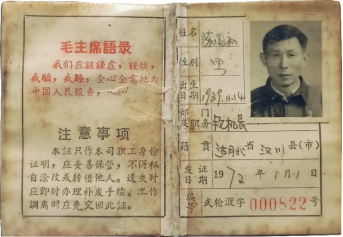 毛主席語录
我们应該謙虛,謹慎,
戒驕,戒躁,全心全意地为
中国人民服务,……
注意事项
本证只作本司职工身份
证明,应妥善保管,不得私
自涂改或转借他人。遗失时
应即时办理补发手续。工作
调离时应先交回此证。
姓名 陈
性别 男
出生日期 1929.11.14
部门及职务
籍貫 湖北省 汉川县(市)
发证日期 1972年1月1日
编号 武轮渡字 000822号